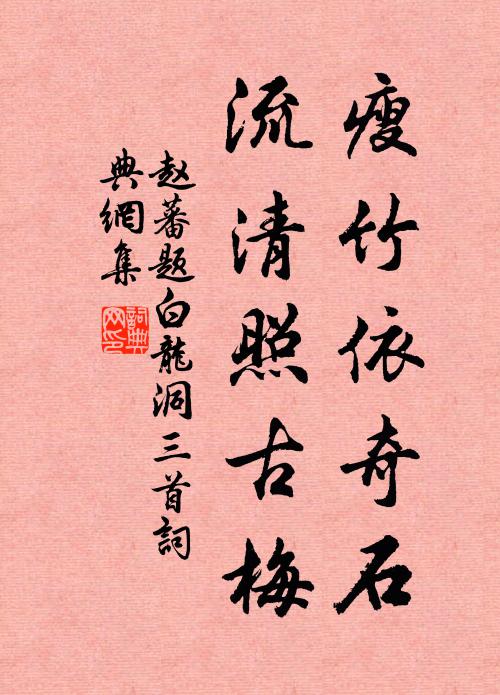 瘦竹依奇石
流清照古梅
赵蕃题白龍洞三首詞
典網集
詞典网印